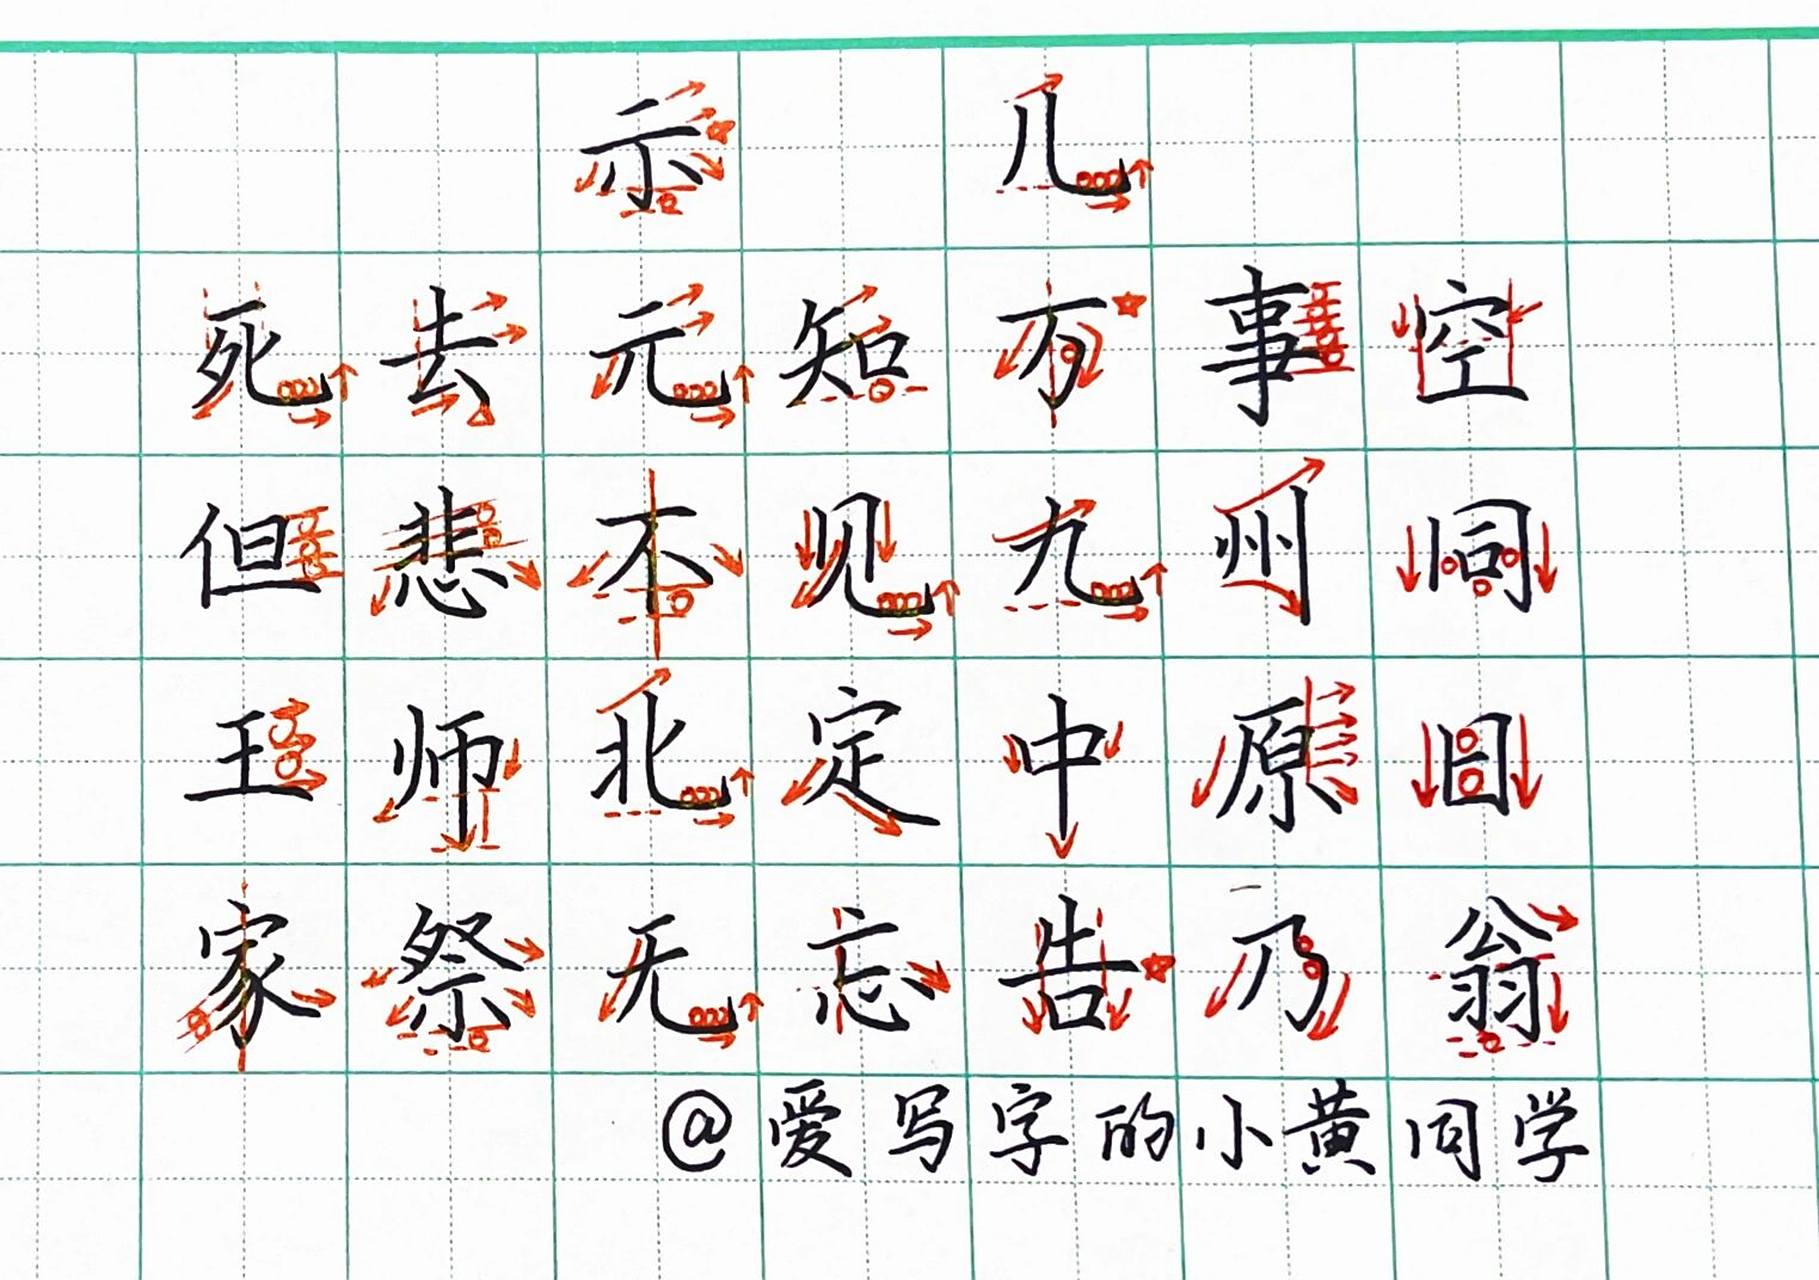 示儿
死去元知万事空
但悲不见九州同
王师北定中原日
家祭无忘告乃翁
@爱写字的小黄同学